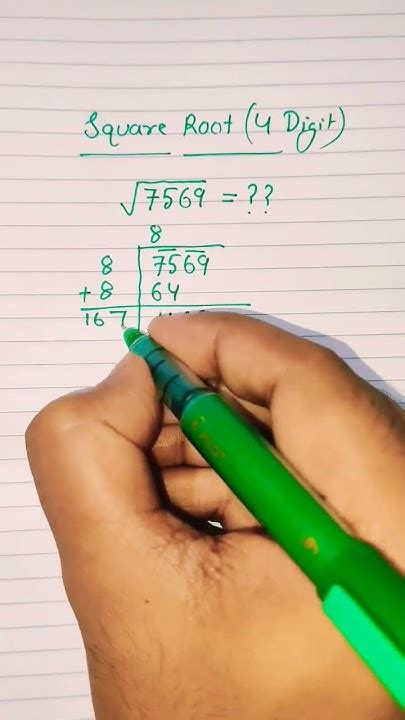 Square Root (4 Digit)
√7569 = ??
8
8 7569
+ 8 64
167